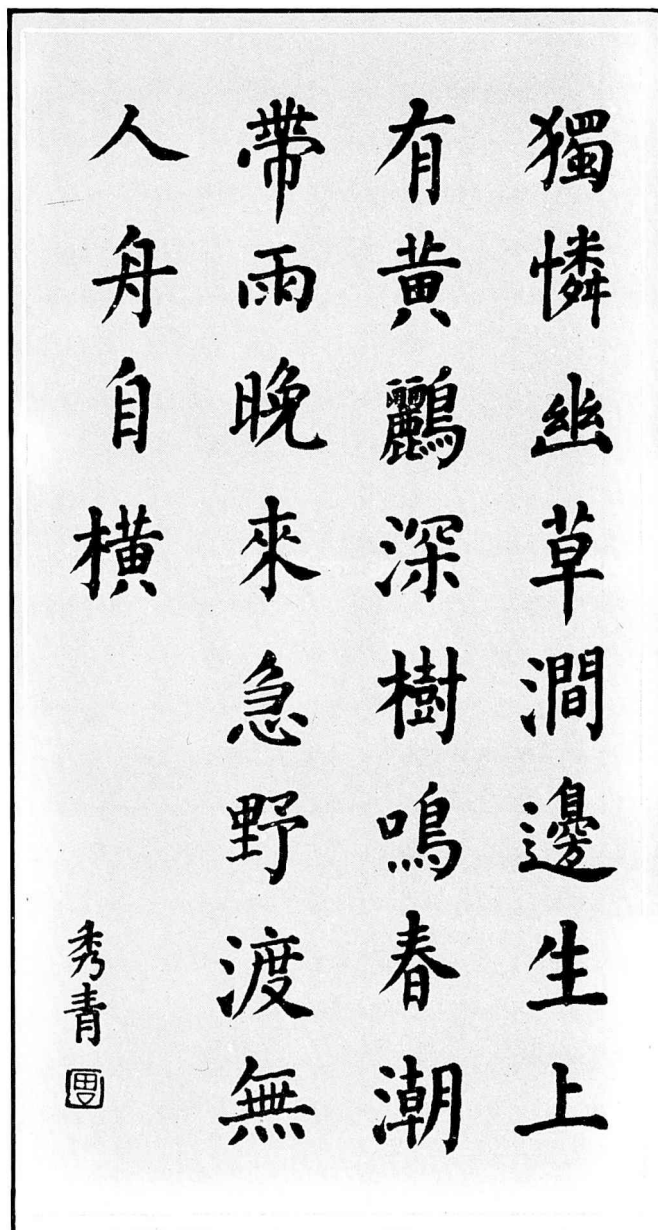 獨憐幽草澗邊生上
有黃鸝深樹鳴春潮
帶雨晚來急野渡無
人舟自橫
秀青